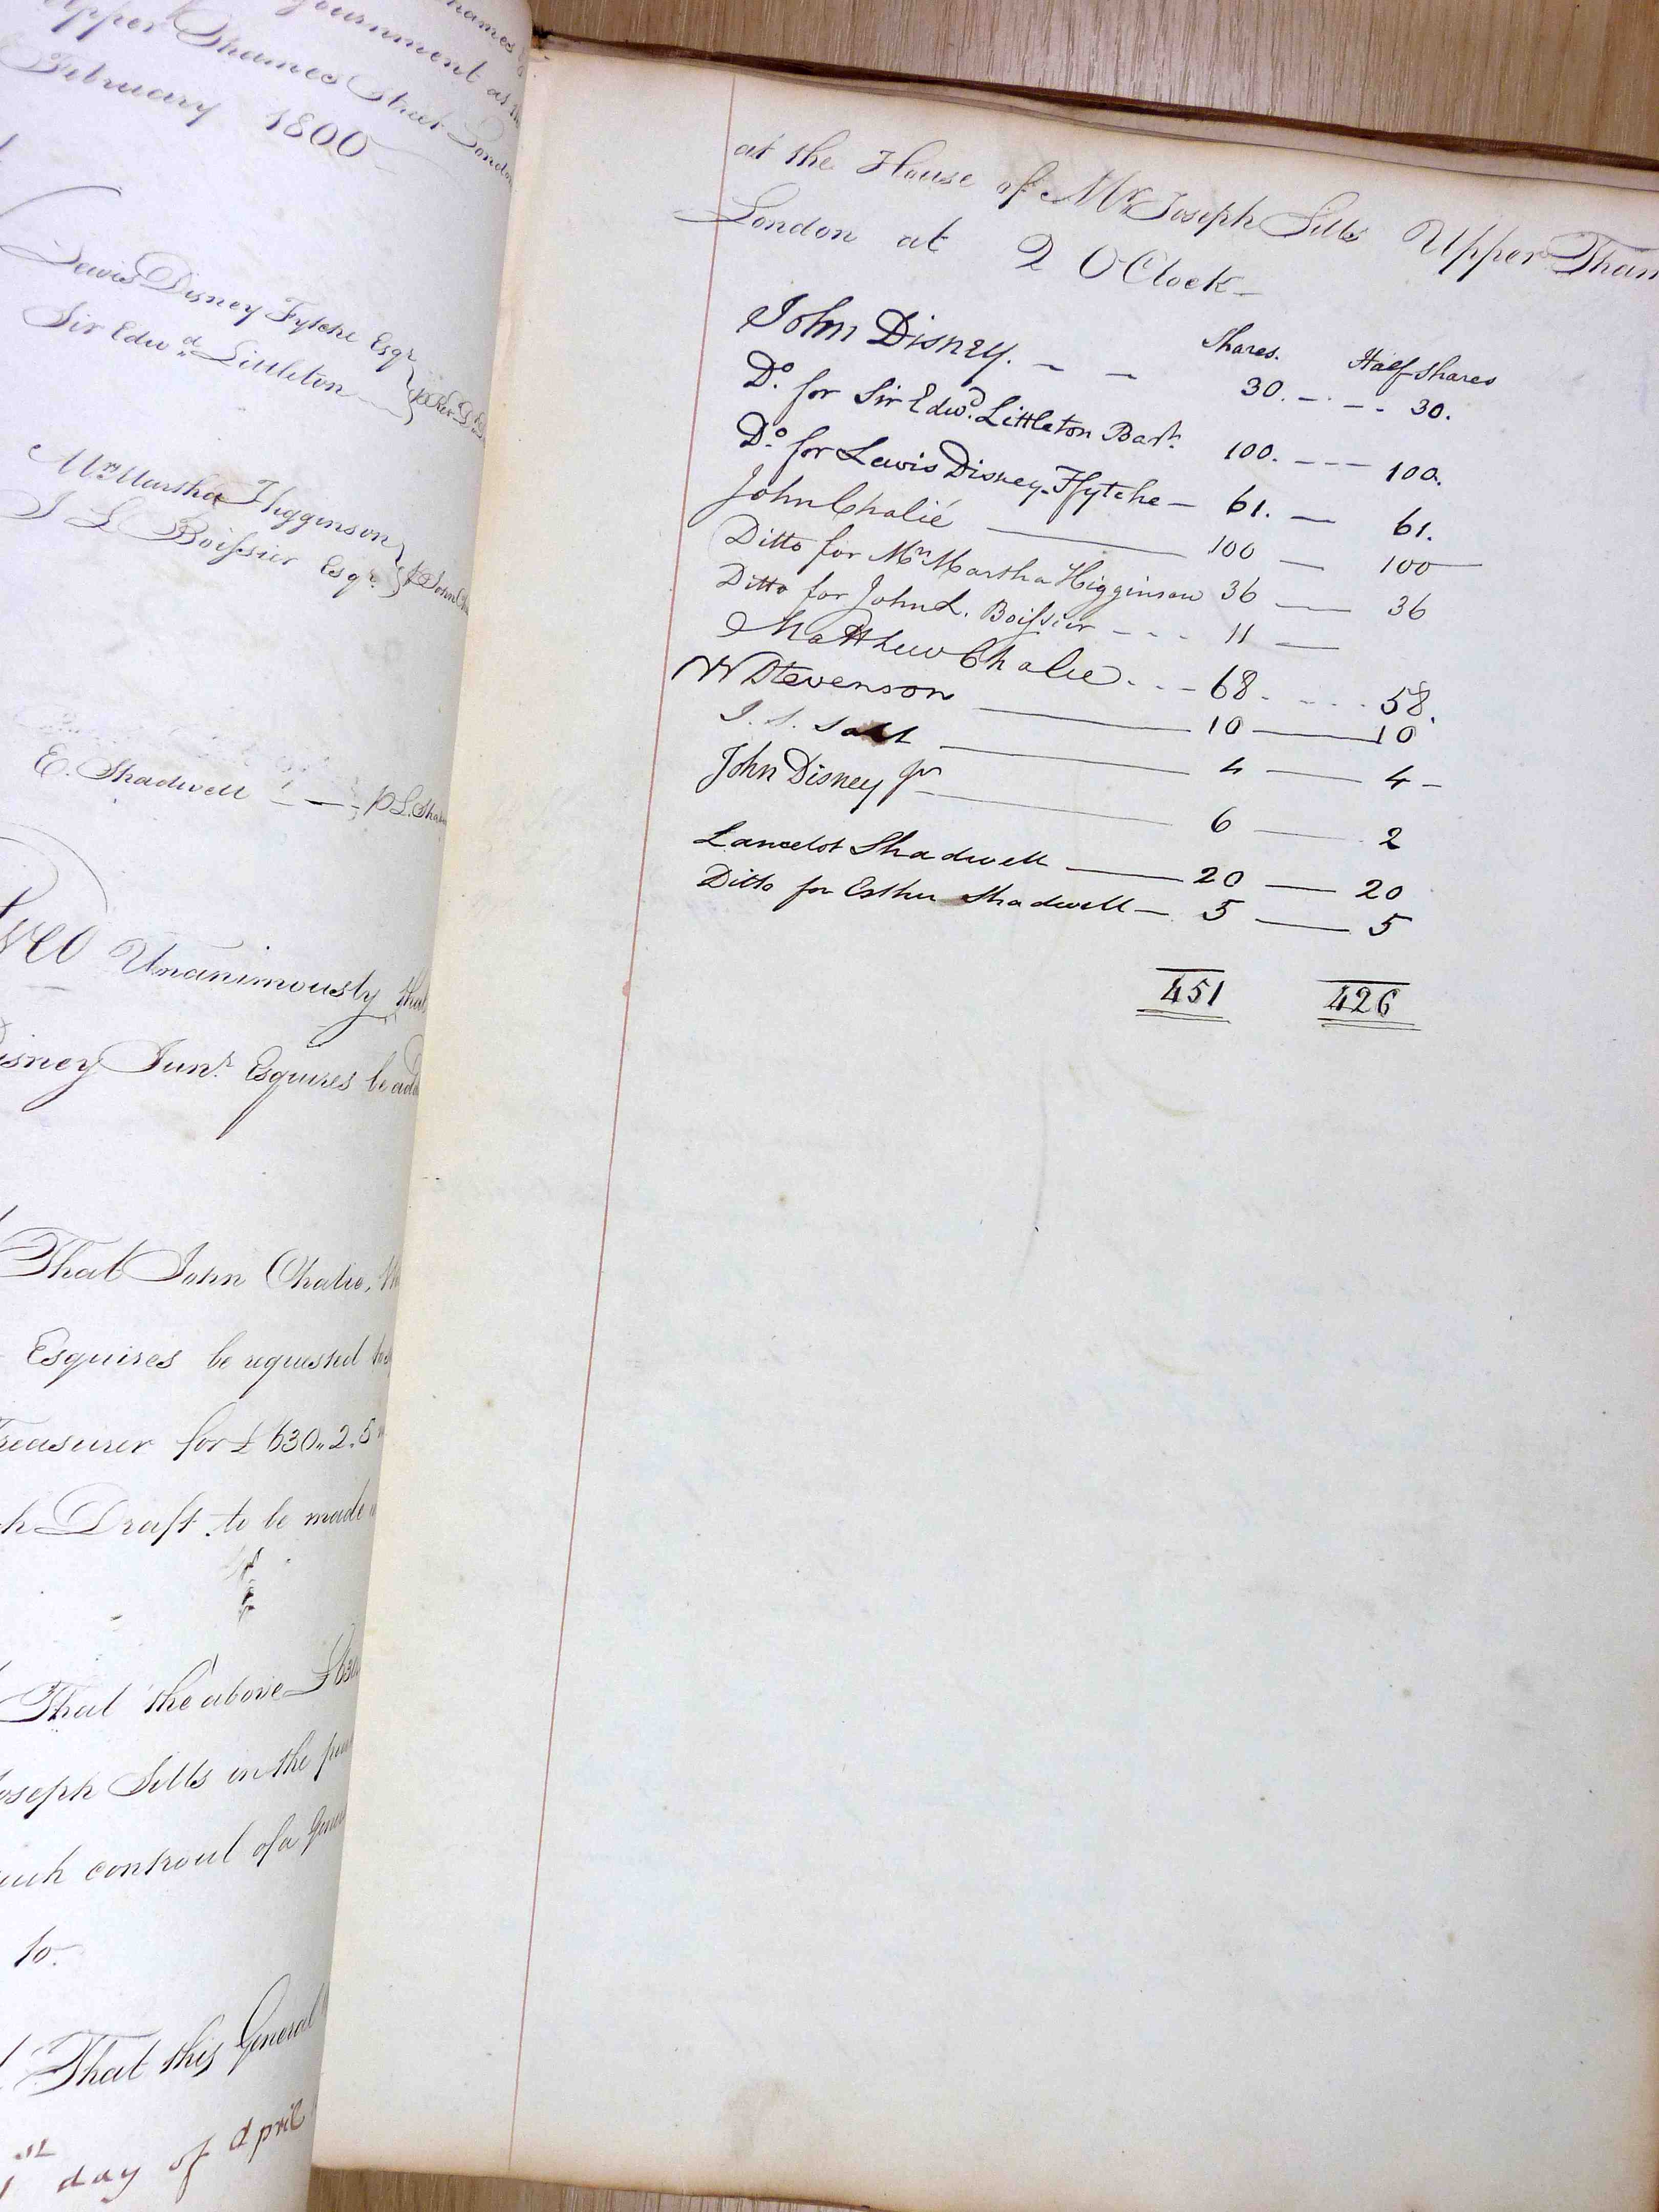 Upper Thames Street London
February 1800
Lewis Disney Fytche Esqr
Sir Edwd. Littleton
Mrs Martha Higginson
J L Boissier Esqr.
E. Shadwell — p L. Sha
Unanimously that
Disney Junr. Esquires be
That John Chalie,
Esquires be requested to
Treasurer for £ 630,, 2. 5
Draft to be made
That the above £ 630
Joseph Sills in the
such controul of a
to
That this General
1st day of April
at the House of Mr. Joseph Sills Upper Tham
London at 2 O Clock —
Shares. Half-shares
John Disney. — — 30. — - — - 30.
Do. for Sir Edwd. Littleton Bart. 100. — — — 100.
Do. for Lewis Disney-Ffytche — 61. — 61.
John Chalié — 100 — 100
Ditto for Mrs Martha Higginson 36 — 36
Ditto for John L. Boissier - - - 11 —
Matthew Chalie. - - 68. - - - - 58.
W Stevenson — 10 — 10
J. S. Salt — 4 — 4 -
John Disney Jr — 6 — 2
Lancelot Shadwell — 20 — 20
Ditto for Esther Shadwell — 5 — 5
451 426